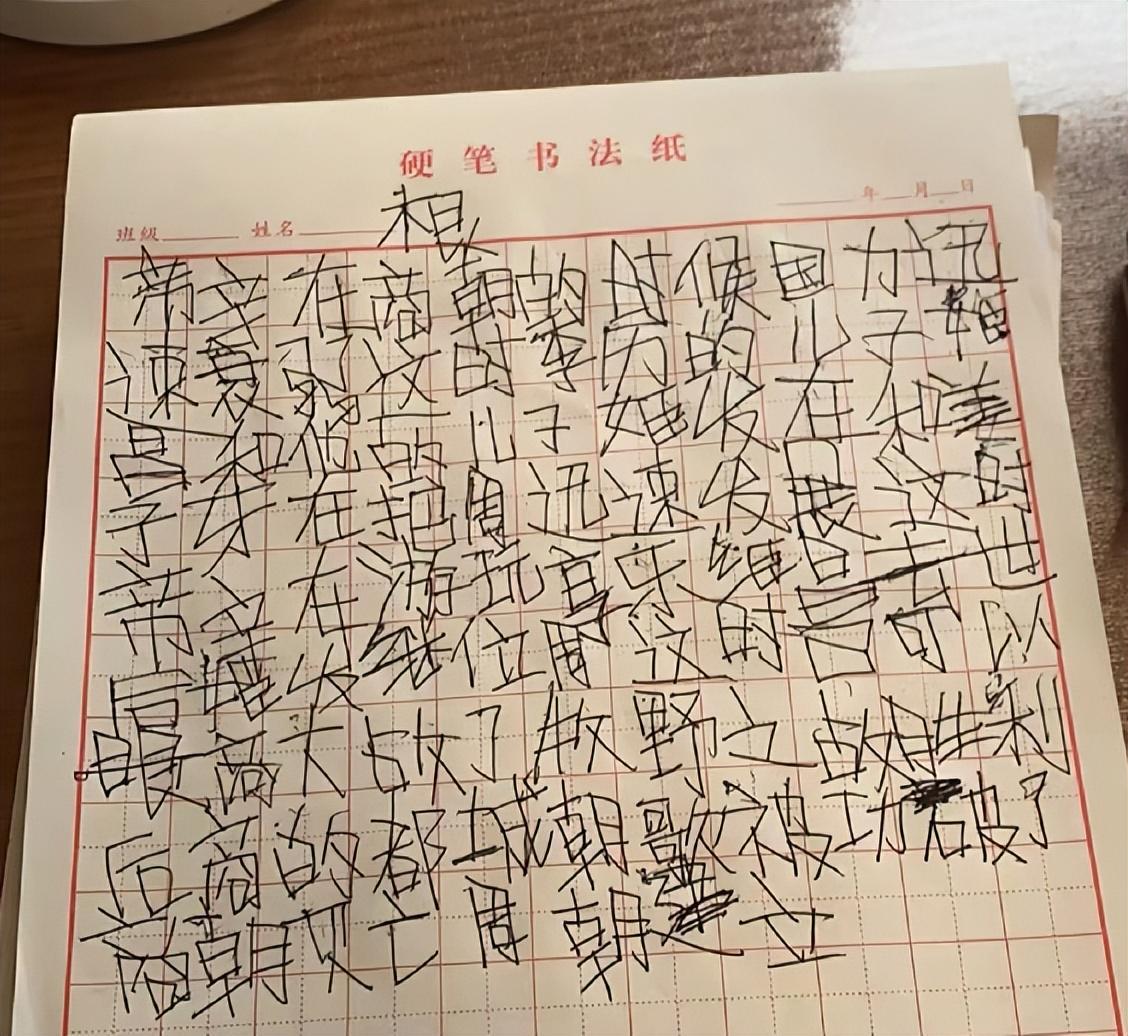 硬笔书法纸
年 月 日
班级 姓名
根
帝辛在商朝的时候国力迅
速衰弱这时季历的儿子姬
昌和他的儿子姬发在和
子牙在把周迅速发展这时
帝辛在游玩享乐姬昌去世
后姬发继位周这时已可以
跟商大战了牧野之战胜利
后商的都城朝歌被功破了
商朝灭亡周朝建立